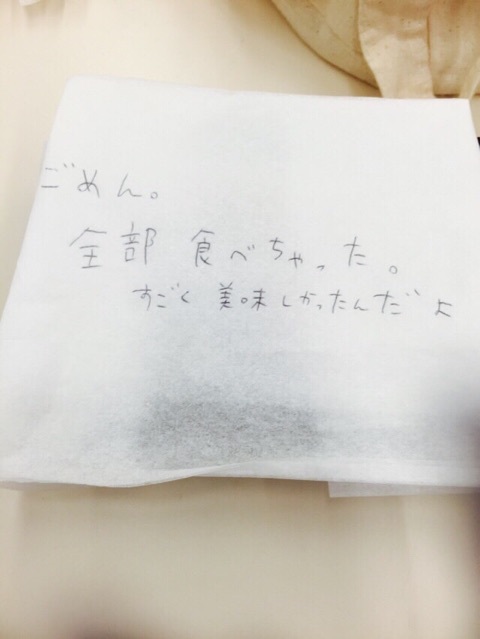 ごめん。
全部 食べちゃった。
すごく 美味しかったんだよ